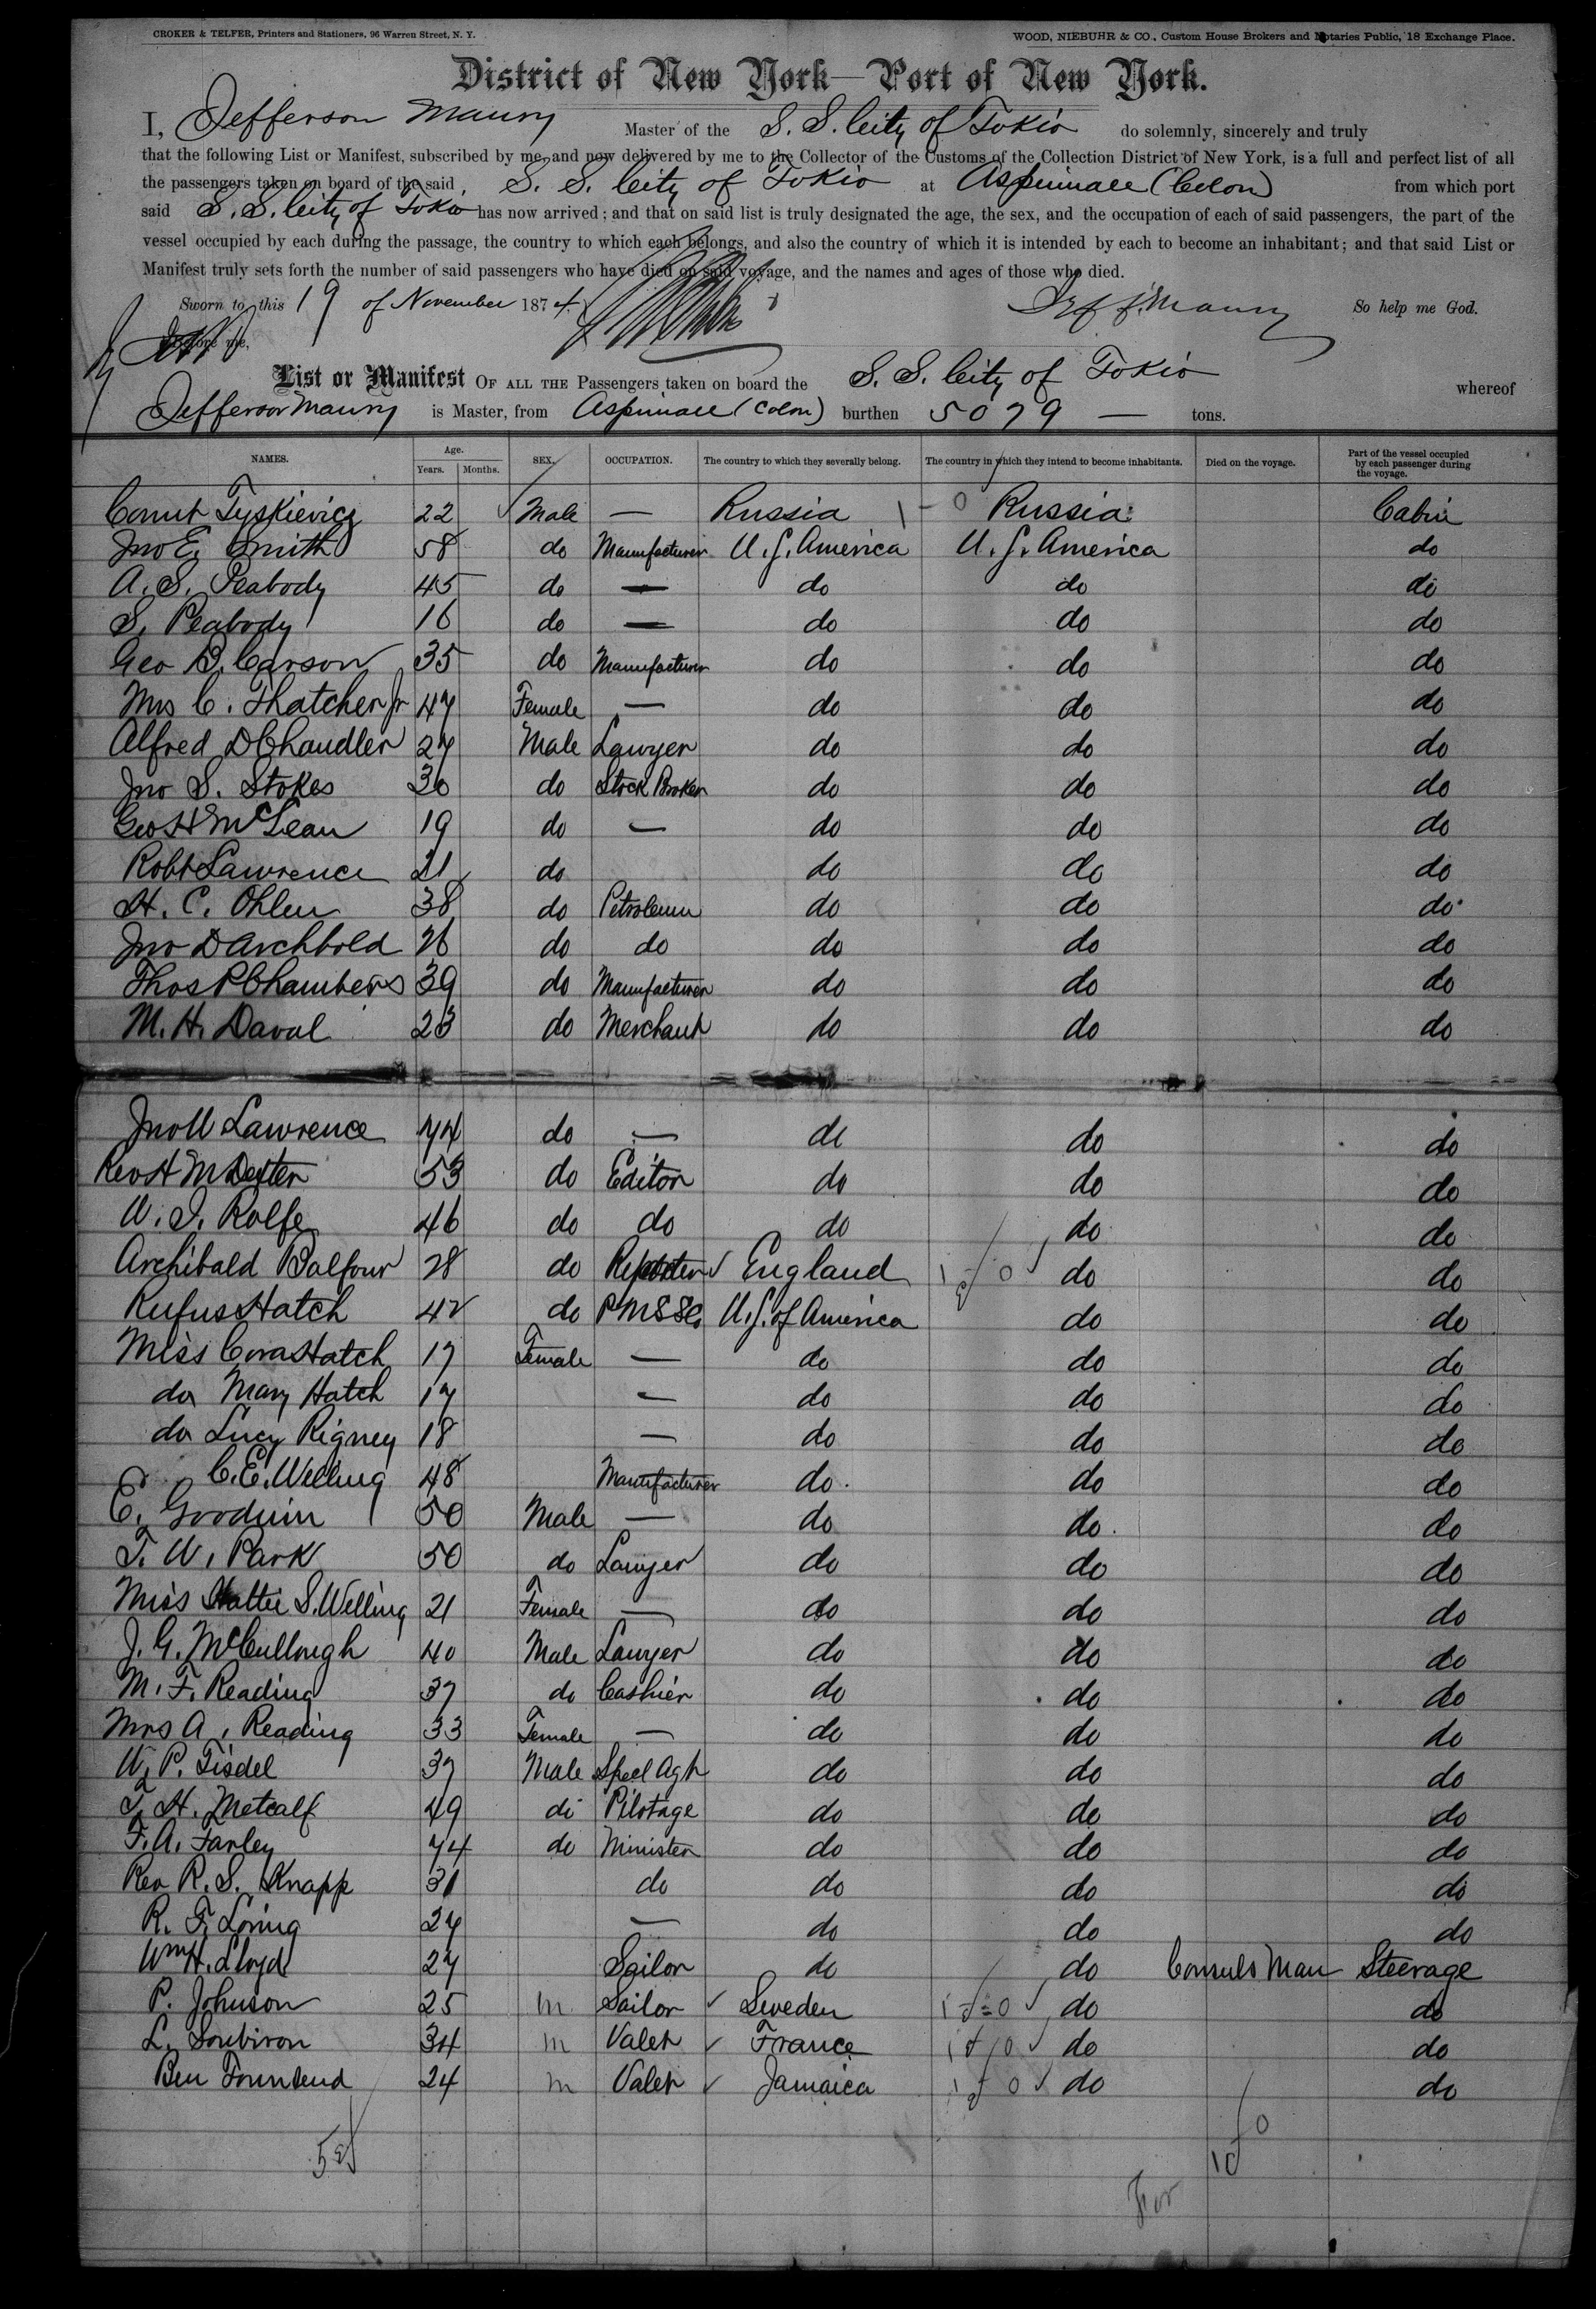 CROKER & TELFER, Printers and Stationers, 96 Warren Street, N. Y. WOOD, NIEBUHR & CO., Custom House Brokers and Notaries Public, 18 Exchange Place.
District of New York—Port of New York.
I, Jefferson Maury Master of the S. S. City of Tokio do solemnly, sincerely and truly
that the following List or Manifest, subscribed by me, and now delivered by me to the Collector of the Customs of the Collection District of New York, is a full and perfect list of all
the passengers taken on board of the said S. S. City of Tokio at Aspinwall (Colon) from which port
said S. S. City of Tokio has now arrived; and that on said list is truly designated the age, the sex, and the occupation of each of said passengers, the part of the
vessel occupied by each during the passage, the country to which each belongs, and also the country of which it is intended by each to become an inhabitant; and that said List or
Manifest truly sets forth the number of said passengers who have died on said voyage, and the names and ages of those who died.
Sworn to this 19 of November 1874. Jeff. Maury So help me God.
Before me,
List or Manifest OF ALL THE Passengers taken on board the S. S. City of Tokio whereof
Jefferson Maury is Master, from Aspinwall (Colon) burthen 5079 — tons.
NAMES. Age. Years. Months. SEX. OCCUPATION. The country to which they severally belong. The country in which they intend to become inhabitants. Died on the voyage. Part of the vessel occupied by each passenger during the voyage.
Count Tyskievicz 22 Male — Russia Russia Cabin
Jno E. Smith 58 do Manufacturer U. S. America U. S. America do
A. S. Peabody 45 do — do do do
S. Peabody 16 do — do do do
Geo B. Carson 35 do Manufacturer do do do
Mrs C. Thatcher Jr 47 Female — do do do
Alfred D Chandler 27 Male Lawyer do do do
Jno S. Stokes 30 do Stock Broker do do do
Geo H McLean 19 do — do do do
Robt Lawrence 21 do do do do
H. C. Ohlen 38 do Petroleum do do do
Jno D Archbold 26 do do do do do
Thos P Chambers 39 do Manufacturer do do do
M. H. Daval 23 do Merchant do do do
Jno W Lawrence 74 do — do do do
Rev H M Dexter 53 do Editor do do do
W. J. Rolfe 46 do do do do do
Archibald Balfour 28 do Reporter England do do
Rufus Hatch 42 do P M S S Co. U. S. of America do do
Miss Cora Hatch 17 Female — do do do
do Mary Hatch 17 — do do do
do Lucy Rigney 18 — do do do
C. E. Welling 48 Manufacturer do do do
E. Goodwin 50 Male — do do do
T. W. Park 50 do Lawyer do do do
Miss Hattie S. Welling 21 Female — do do do
J. G. McCullough 40 Male Lawyer do do do
M. F. Reading 37 do Cashier do do do
Mrs A. Reading 33 Female — do do do
W. P. Tisdel 37 Male Specl Agt do do do
T. H. Metcalf 49 do Pilotage do do do
F. A. Farley 74 do Minister do do do
Rev R. S. Knapp 31 do do do do
R. F. Loring 27 — do do do
Wm H. Lloyd 27 Sailor do do Consuls Man Steerage
P. Johnson 25 m Sailor Sweden do do
L. Soubiron 34 m Valet France do do
Ben Townsend 24 m Valet Jamaica do do
For